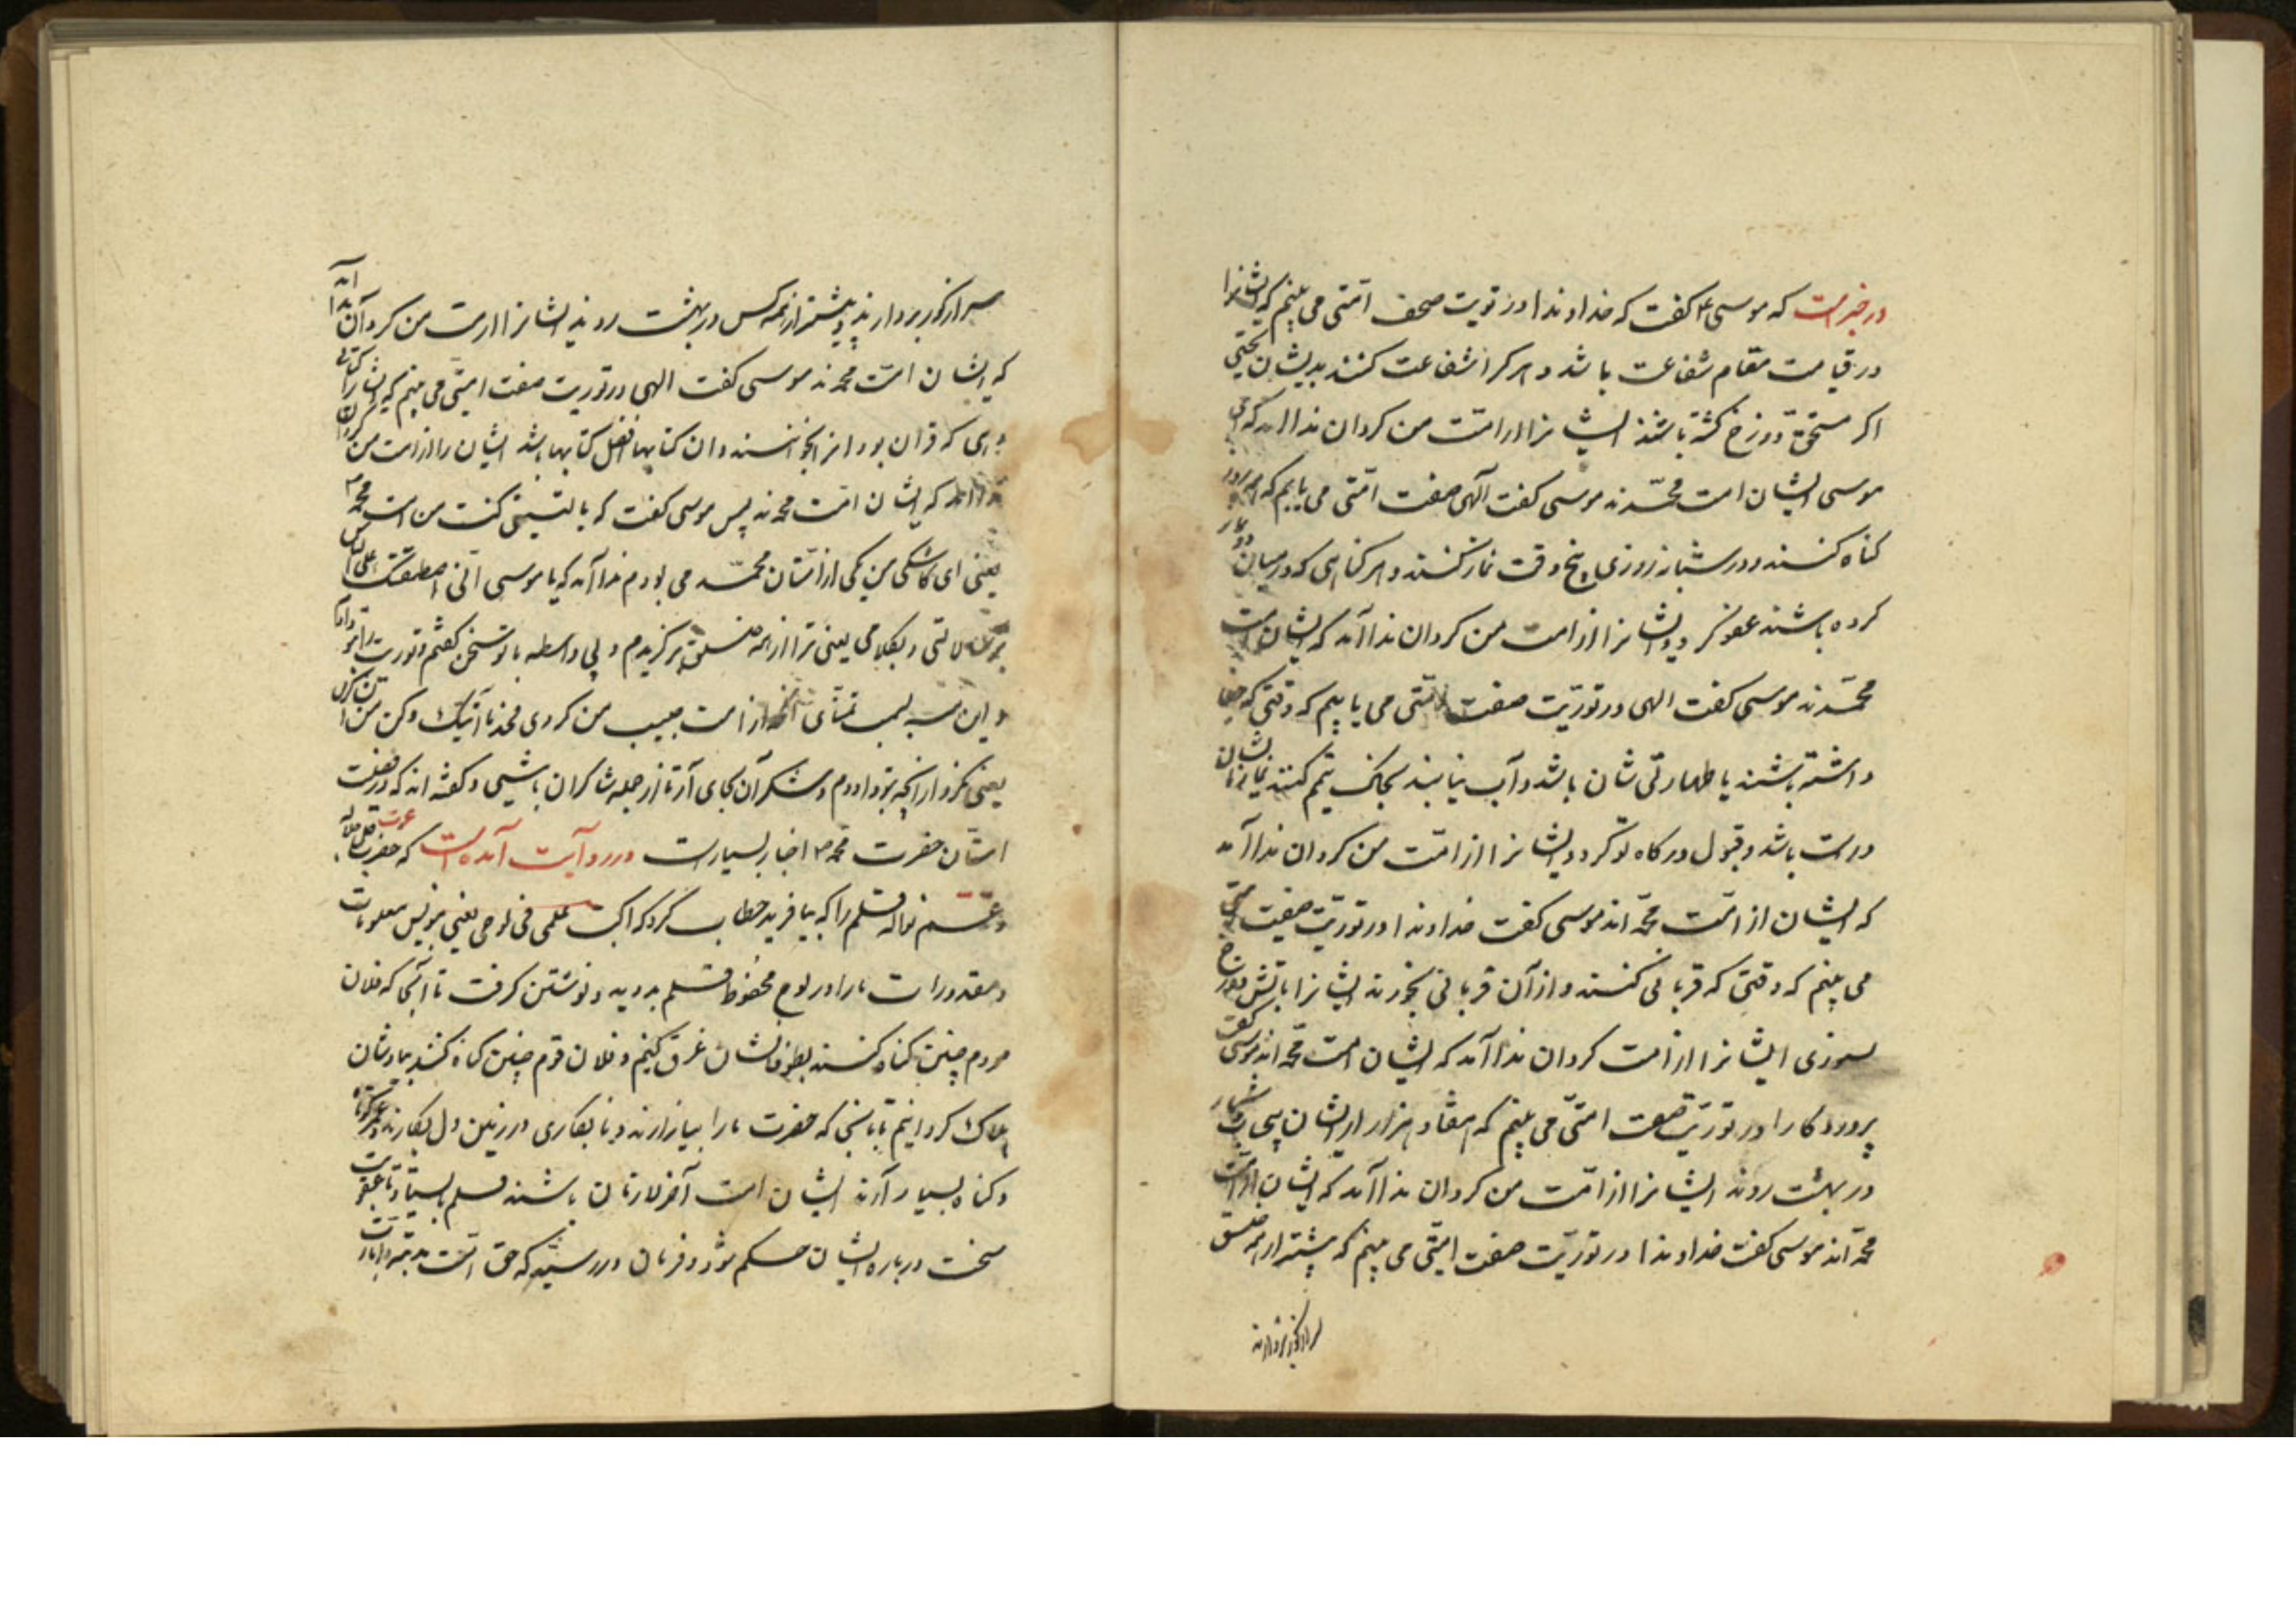 در خبر است که موسی ع کفت که خداوندا در توریت صحف امّتی می بینم که ایشانرا
در قیامت مقام شفاعت باشد و هر کرا شفاعت کنند بدیشان بخشی
اکر مستحق دوزخ کشته باشند ایشانرا از امّت من کردان ندا آمد که ای
موسی ایشان امت محمّدند موسی کفت آلهی صفت امّتی می یابم که هر روز
کناه کنند و در شبانه روزی پنج وقت نماز کنند و هر کناهی که در میان دو نماز
کرده باشند عفو کردد ایشانرا از امت من کردان ندا آمد که ایشان امت
محمّدند موسی کفت الهی در توریّت صفت امّتی می یابیم که وقتی که
داشته باشند یا طهارتی شان باشد و آب نیابند بخاک تیمّم کنند نماز ایشان
درست باشد و قبول درکاه تو کردد ایشانرا از امّت من کردان ندا آمد
که ایشان از امّت محمّد اند موسی کفت خداوندا در توریّت صفت امتی
می بینم که وقتی که قربانی کنند و از آن قربانی بخورند ایشانرا باتش دوزخ
نسوزی ایشانرا از امت کردان ندا آمد که ایشان امت محمّد اند موسی کفت
پروردکارا در توریّت صفت امتّی می بینم که هفتاد هزار از ایشان بی شمار
در بهشت روند ایشانرا از امّت من کردان ندا آمد که ایشان از امّت
محمّد اند موسی کفت خداوندا در توریّت صفت امتّی می بینم که پیشتر از همه خلق
سر از کور بردارند
سر از کور بردارند و پیشتر از همه کس در بهشت روند ایشانرا از امت من کردان ندا آمد
که ایشان امّت محمدند موسی کفت الهی در توریت صفت امتّی می بینم که ایشانرا کتابی
دهی که قران بود انرا بخوانند و ان کتابها افضل کتابها باشد ایشان را از امت من کردان
ندا آمد که ایشان امّت محمدند پس موسی کفت که یا لیتنی کنت من امت محمد
یعنی ای کاشکی من یکی از امّتان محمّد می بودم ندا آمد که یا موسی انّی اصطفیتک علی الناس
برسالاتی و بکلامی یعنی ترا از همه خلق برکزیدم و بی واسطه با تو سخن کفتم و توریت
و این همه تمنّای از امت حبیب من کردی فخذ ما آتیتک و کن من الشاکرین
یعنی فرو دار انچه بتو دادم و شکر آن بجای آر تا از جمله شاکران باشی و کفته اند که در فضیلت
امتّان حضرت محمّد اخبار بسیارست در روایت آمده است که حضرت عزت
قلم را که بیافرید خطاب کرد که اکتب علمی فی لوحی یعنی بنویس معلومات
و مقدورات مارا در لوح محفوظ قلم بدوید و نوشتن کرفت تا آنجا که فلان
مردم چنین کناه کنند بطوفانشان غرق کنیم و فلان قوم چنین کناه کنند ببادشان
هلاک کردانیم تا بانجا که حضرت مارا بیازارند و نابکاری در زمین دل بکارند
و کناه بسیار آرند ایشان امت آخر زمان باشند قلم بایستاد تا عقوبت
سخت درباره ایشان حکم شود فرمان در رسید که